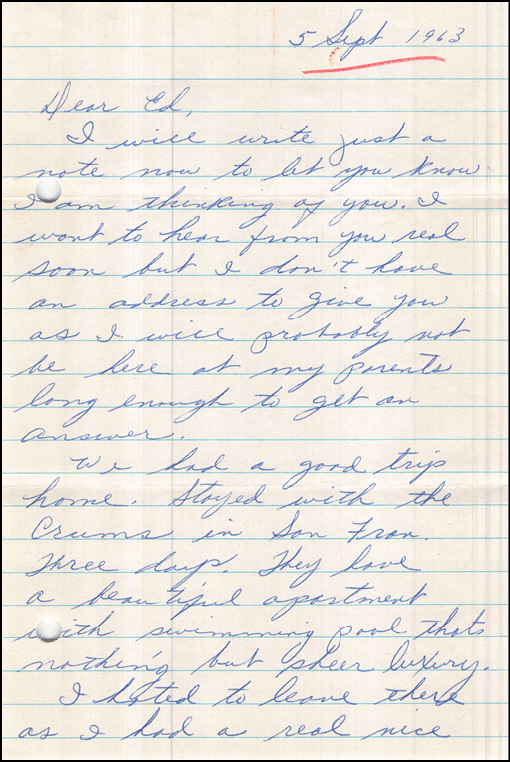 5 Sept 1963
Dear Ed,
I will write just a
note now to let you know
I am thinking of you. I
want to hear from you real
soon but I don't have
an address to give you
as I will probably not
be here at my parents
long enough to get an
answer.
We had a good trip
home. Stayed with the
Crums in San Fran.
Three days. They have
a beautiful apartment
with swimming pool thats
nothing but sheer luxury.
I hated to leave there
as I had a real nice